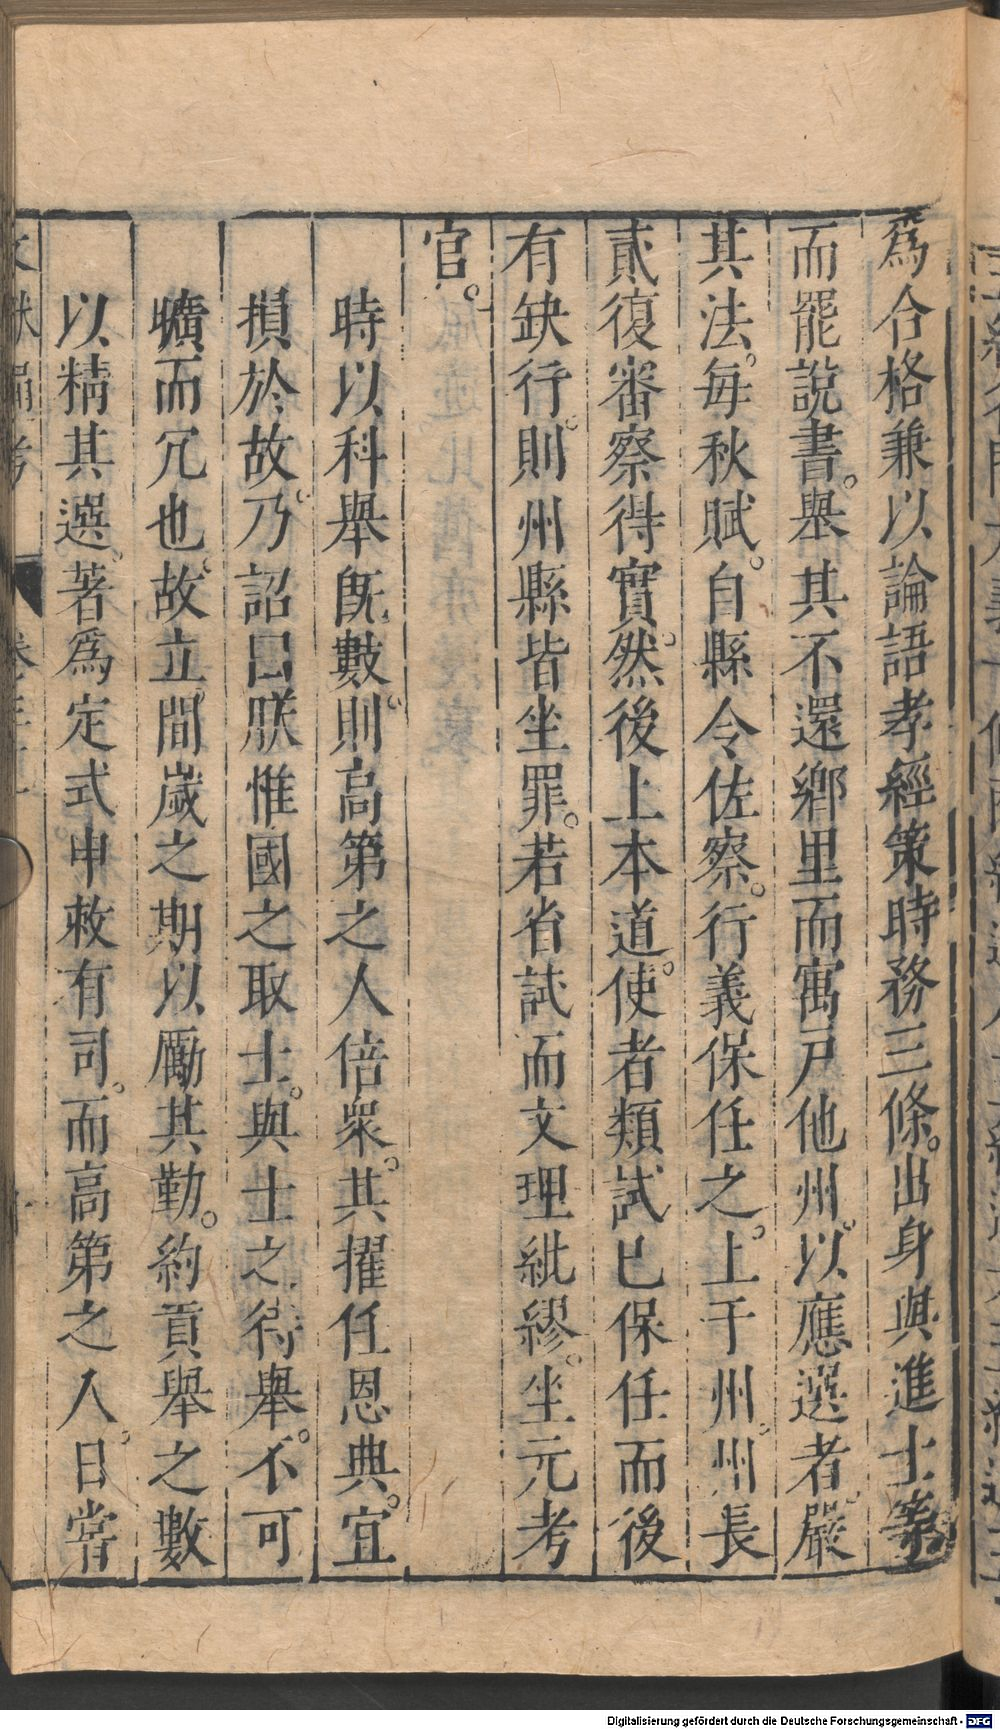 爲合格兼以論語孝經策時務三條。出身與進士等
而罷說書。舉其不還鄉里而寓戸他州。以應選者。嚴
其法。每秋賦。自縣令佐察。行義保任之。上于州。州長
貳復審察得實。然後上本道。使者類試已保任而後
有缺行。則州縣皆坐罪。若省試而文理紕繆。坐元考
官。
時以科舉旣數。則高第之人倍衆。其擢任恩典。宜
損於故。乃詔曰朕惟國之取士。與士之待舉。不可
曠而冗也。故立間歲之期以勵其勤。約貢舉之數
以精其選。著爲定式申敕有司。而高第之人。日嘗
Digitalisierung gefördert durch die Deutsche Forschungsgemeinschaft - DFG